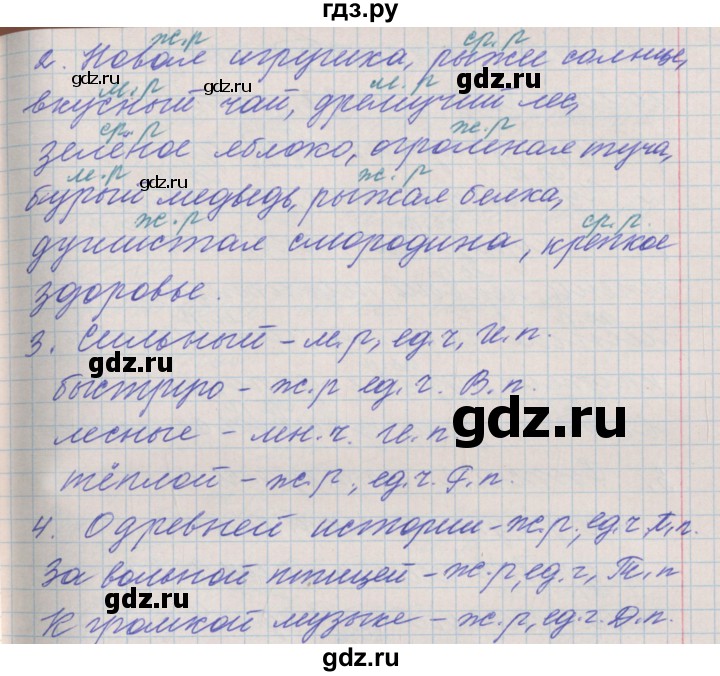 гдз.ру
ж.р ср.р
2. Новая игрушка, рыжее солнце,
gdz.ru gdz.ru
м.р м.р
вкусный чай, дремучий лес,
ср.р ж.р
зелёное яблоко, огромная туча,
м.р gdz.ru ж.р
бурый медведь, рыжая белка,
ж.р ср.р.
душистая смородина, крепкое
здоровье.
gdz.ru
3. Сильный - м.р, ед.ч, И.п.
gdz.ru
быструю - ж.р ед.ч. В.п.
gdz.ru
лесные - мн.ч. И.п
тёплой - ж.р., ед.ч. Р.п.
4. О древней истории - ж.р., ед.ч П.п.
gdz.ru
За вольной птицей - ж.р, ед.ч, Т.п
gdz.ru
К громкой музыке - ж.р, ед.ч. Д.п.
gdz.ru